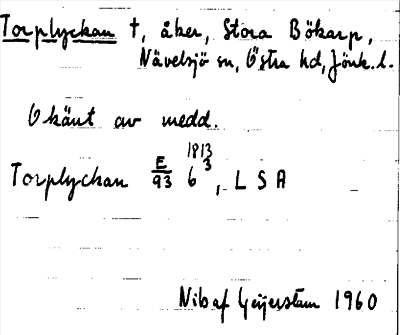 Torplyckan †, åker, Stora Bökarp,
Nävelsjö sn, Östra hd, Jönk. l.
Okänt av medd.
Torplyckan E/93 1813 3/6, L S A
Nils af Geijerstam 1960